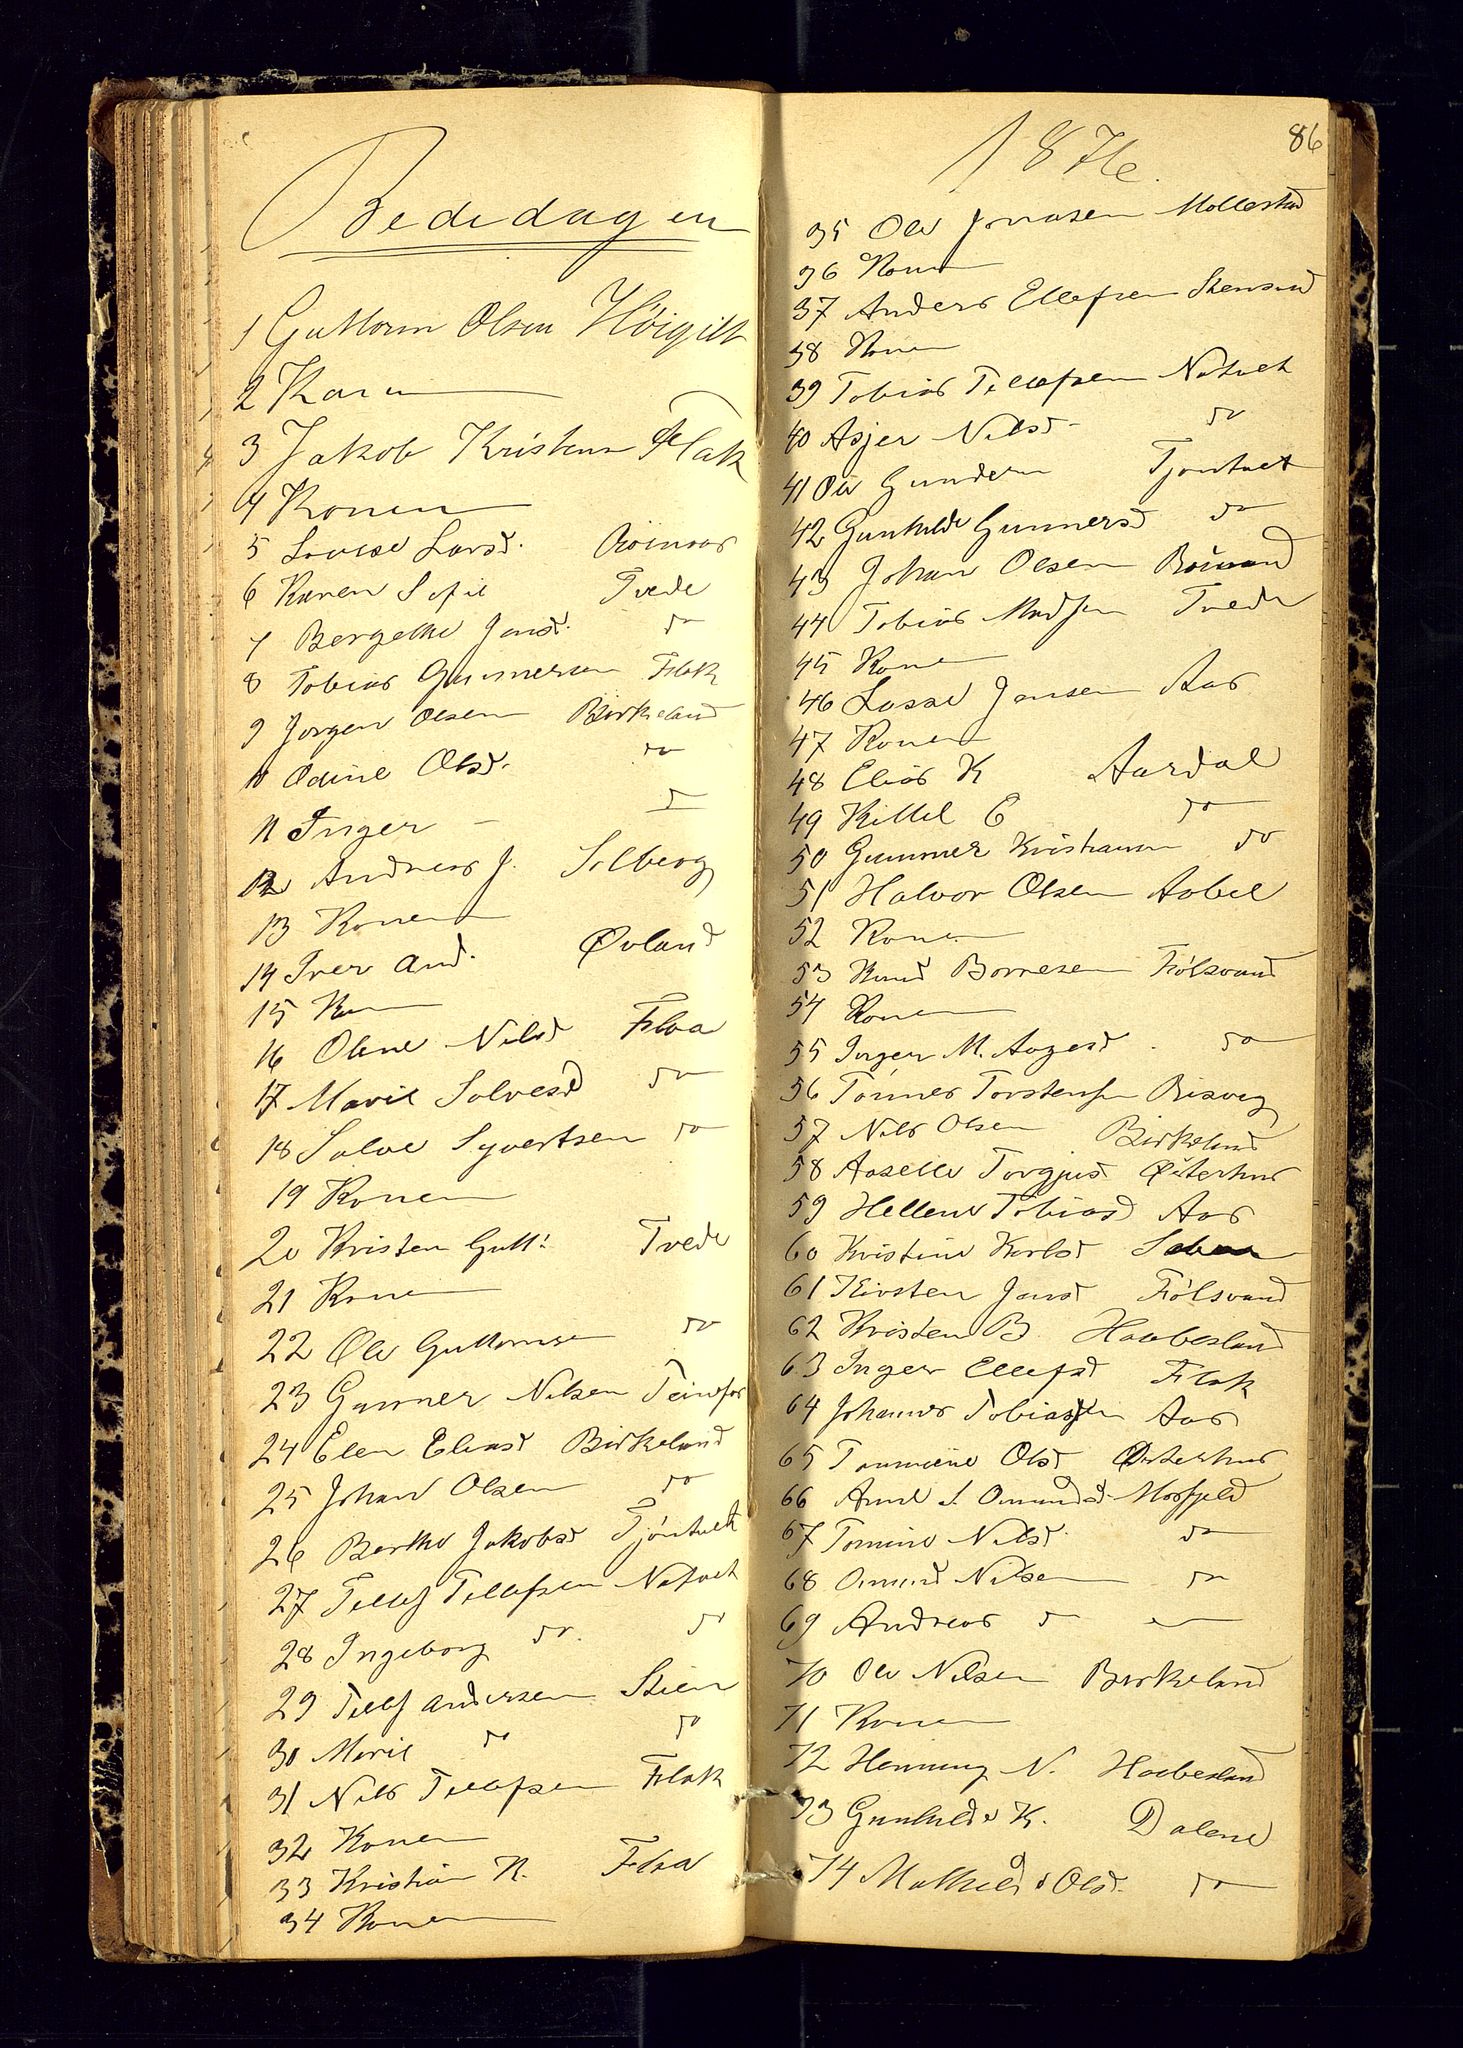 Bededagen
1 Guttorm Olsen Høigilt
2 Karin
3 Jakob Kristens Flak
4 Konen
5 Lovise Larsd.
6 Karen Sofie Tvede
7 Bergethe Jensd. do
8 Tobias Gunnersen Flak
9 Jørgen Olsen Birkeland
10 Odine Olsd. do
11 Inger - do
12 Andreas J. Solberg
13 Konen
14 Iver And. Øvland
15 Kon
16 Olene Nilsd Flaa
17 Marie Solvesd do
18 Salve Syvertsen do
19 Konen
20 Kristen Gutt: Tvede
21 Konen
22 Ole Guttormse do
23 Gunner Nilsen Teinefos
24 Elen Eliasd Birkeland
25 Johan Olsen do
26 Berthe Jakobsd Tjøntvedt
27 Tellef Tellefsen Natvet
28 Ingeborg do. do
29 Tellef Andersen Stien
30 Marie do do
31 Nils Tellefsen Flak
32 Konen
33 Kristian N. Flaa
34 Konen
1876.
86
35 Ole Jonasen Mollestad
36 Konen
37 Anders Ellefsen Stensund
38 Konen
39 Tobias Tellefsen Natvet
40 Asjer Nilsd do
41 Ole Gundersn Tjøntvet
42 Gunhilde Gunnersd do
43 Johan Olsen
44 Tobias Madsen Tvede
45 Konen
46 Lasse Jensen Aas
47 Konen
48 Elias K Aardal
49 Kittel E do
50 Gunner Kristiansen do
51 Halvor Olsen Aabel
52 Konen
53 Knud Børresen Fiølsvand
54 Konen
55 Inger M. Aagesd. do
56 Tønnes Torstensen Risveg
57 Nils Olsen Birkeland
58 Aaselle Torgjusd Østerhus
59 Hellene Tobiasd Aas
60 Kristine Karlsd
61 Kirsten Jensd Fiølsvand
62 Kristen B. Haabesland
63 Inger Ellefsd Flak
64 Johannes Tobiassen Aas
65 Tommine Olsd Østerhus
66 Anne S. Omundsd Mosfjeld
67 Tomine Nilsd. do
68 Omund Nilsen do
69 Andreas do —
70 Ole Nilsen Birkeland
71 Konen
72 Henning N. Haabesland
73 Gunhilde K. Dalene
74 Mathilde Olsd. do